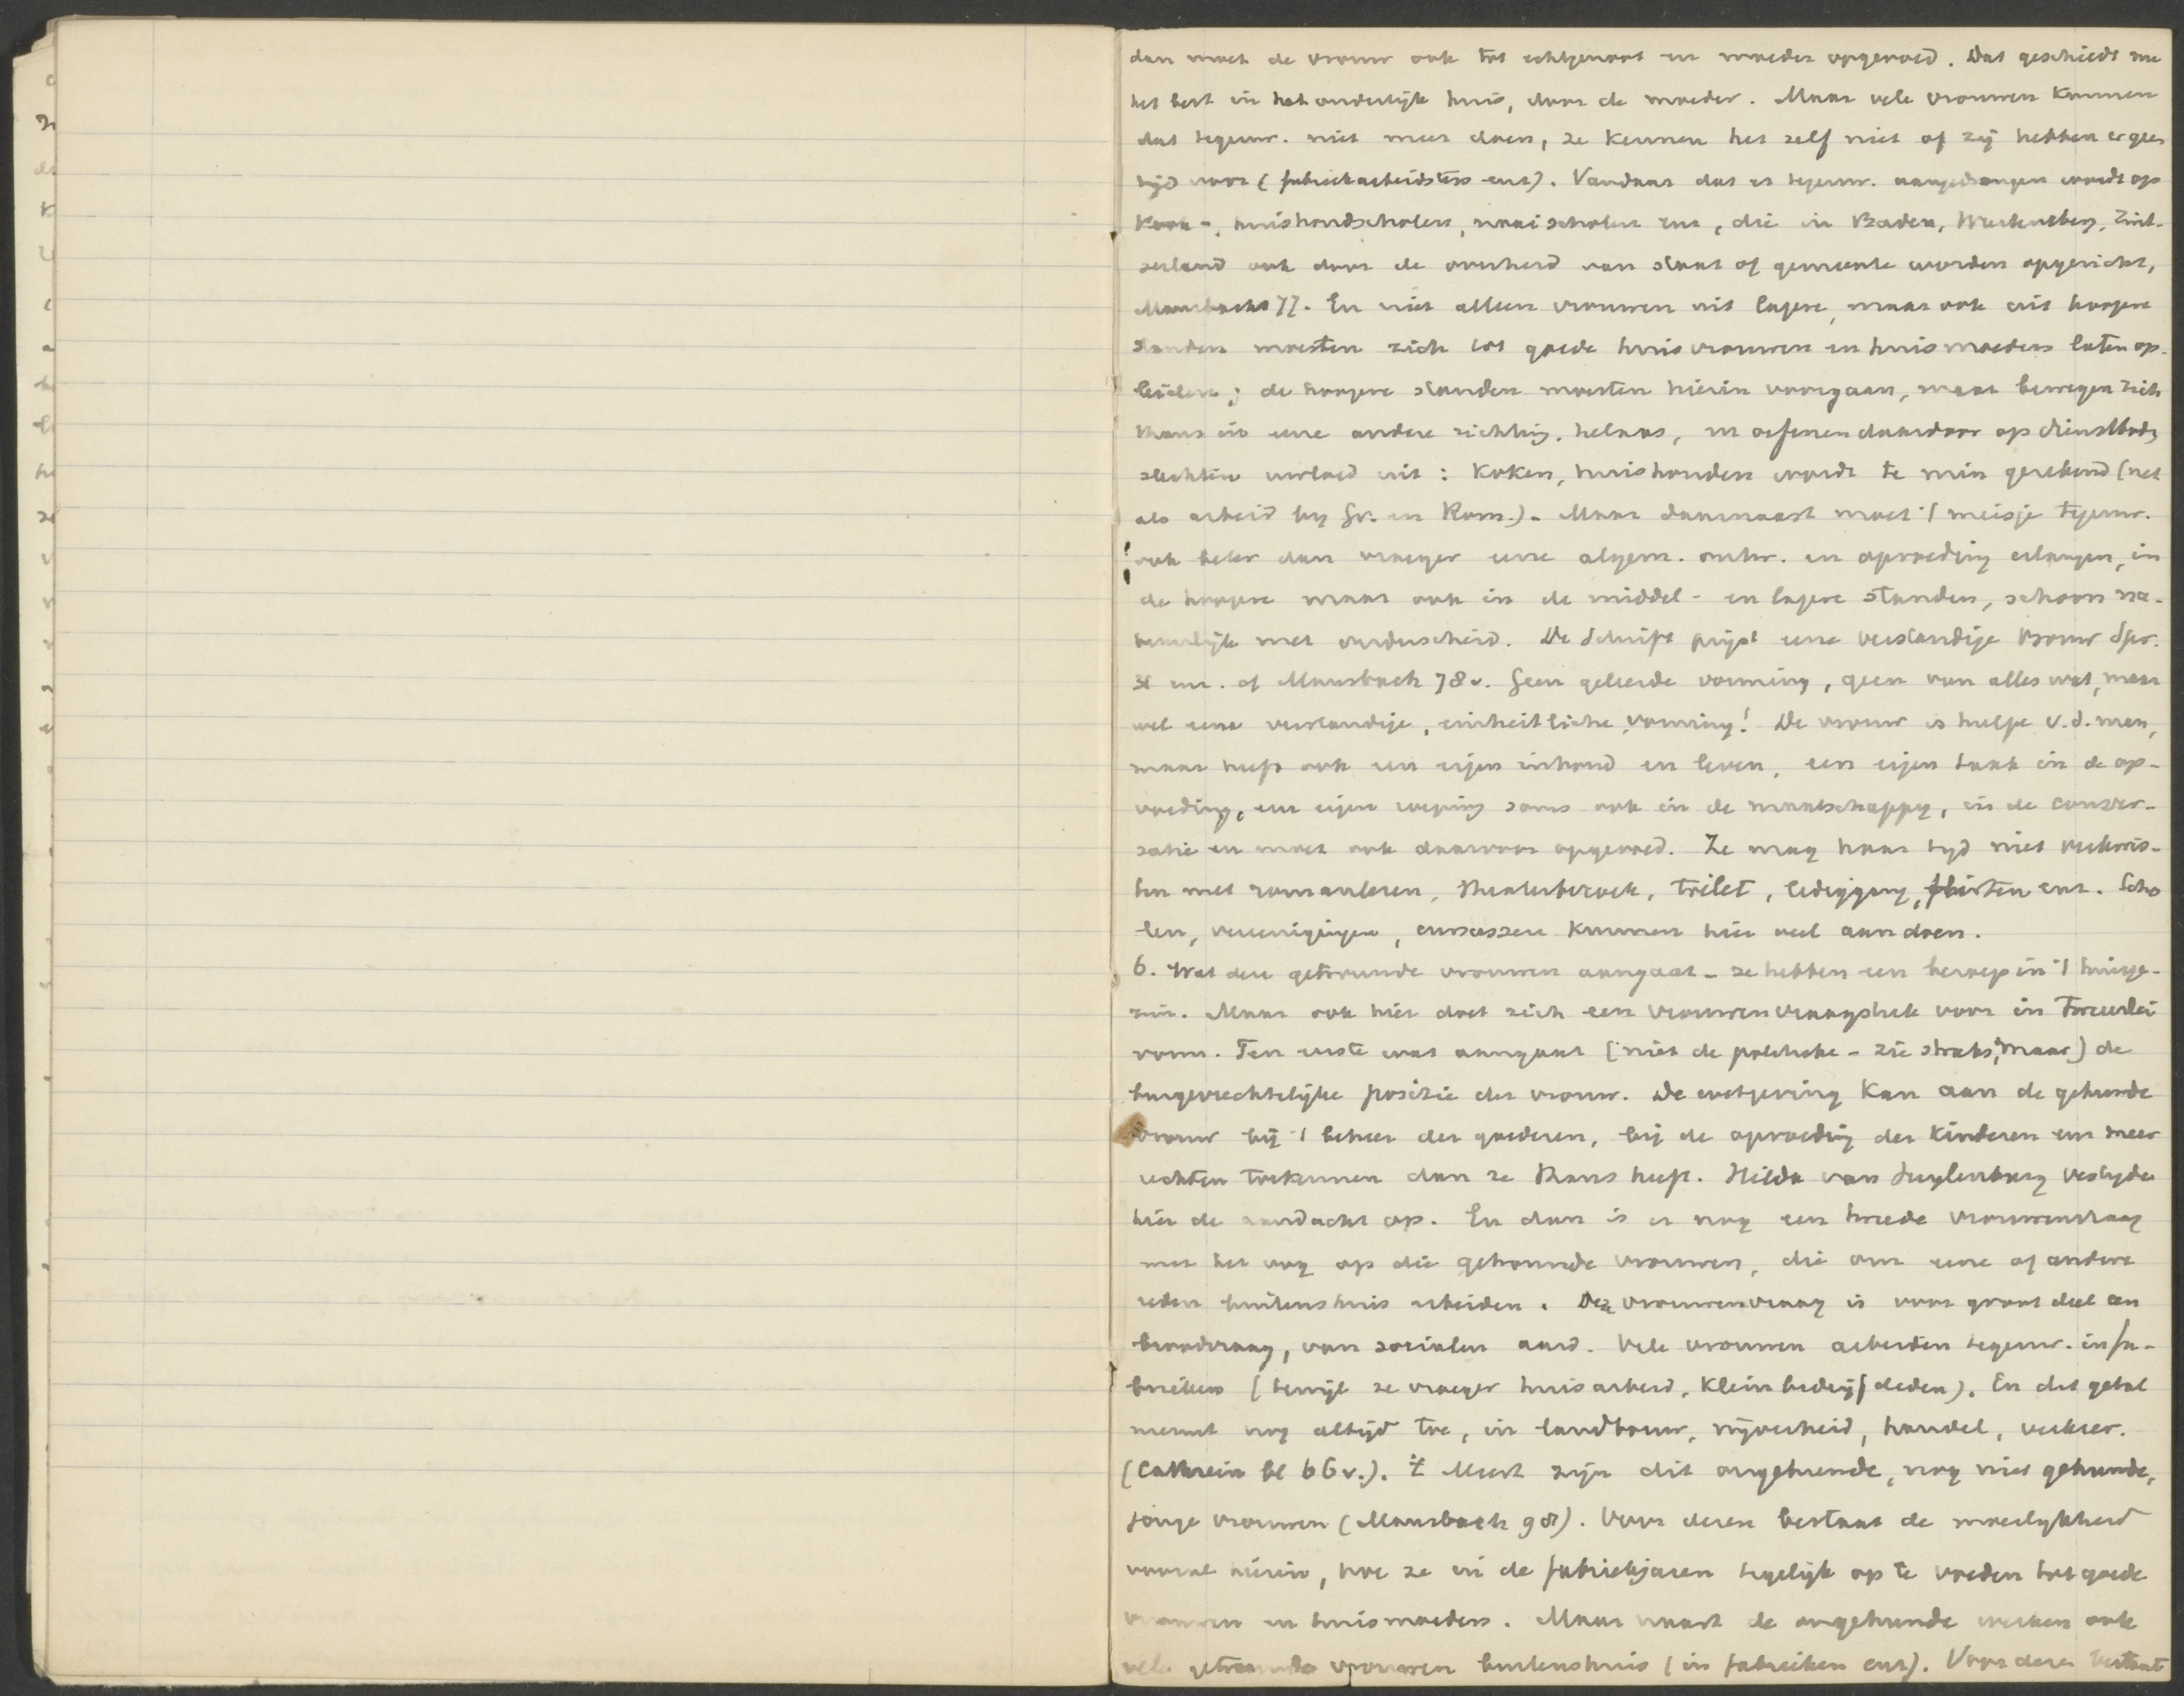 dan moet de vrouw ook tot echtgenoot en moeder opgevoed. Dat geschiedt nu
het best in het ouderlijk huis, door de moeder. Maar vele vrouwen kunnen
dat tegenw. niet meer doen, ze kennen het zelf niet of zij hebben er geen
tijd voor (fabriekarbeidsters enz). Vandaar dat er tegenw. aangedrongen wordt op
Kook-, huishoudscholen, naaischolen enz, die in Baden, Wurtemberg, Zwit-
serland ook door de overheid van staat of gemeente worden opgericht,
Mausbach 77. En niet alleen vrouwen uit lagere, maar ook uit hoogere
standen moesten zich tot goede huisvrouwen en huismoeders laten op-
leiden; de hoogere standen moesten hierin voorgaan, maar bewegen zich
thans in eene andere richting, helaas, en oefenen daardoor op dienstbod.
slechten invloed uit: koken, huishouden wordt te min gerekend (net
als arbeid by Gr. en Rom.). Maar daarnaast moet 't meisje tegenw.
ook beter dan vroeger eene algem. ontw. en opvoeding erlangen, in
de hoogere maar ook in de middel- en lagere standen, schoon na-
tuurlijk met onderscheid. De Schrift prijst eene verstandige vrouw Spr.
31 enz. cf Mausbach 78v. Geen geleerde vorming, geen van alles wat, maar
wel eene verstandige, einheitliche vorming! De vrouw is hulpe v.d. man,
maar heeft ook een eigen inhoud en leven, een eigen taak in de op-
voeding, een eigen roeping soms ook in de maatschappy, in de conver-
satie en moet ook daarvoor opgevoed. Ze mag haar tyd niet verkwis-
ten met romanlezen, theaterbezoek, toilet, lediggang, flirten enz. Scho
len, vereenigingen, cursussen kunnen hier veel aan doen.
6. Wat den getrouwde vrouwen aangaat - ze hebben een beroep in 't huisge-
zin. Maar ook hier doet zich een vrouwenvraagstuk voor in tweeërlei
vorm. Ten eerste wat aangaat (niet de politieke - zie straks, maar) de
burgerrechtelijke positie der vrouw. De wetgeving kan aan de gehuwde
vrouw bij 't beheer der goederen, bij de opvoeding der kinderen enz meer
rechten toekennen dan ze thans heeft. Hilda van Suylenburg vestigde
hier de aandacht op. En dan is er nog een tweede vrouwenvraag
met het oog op die getrouwde vrouwen, die om eene of andere
reden buitenshuis arbeiden. Deze vrouwenvraag is voor groot deel een
broodvraag, van socialen aard. Vele vrouwen arbeiden tegenw. in fa-
brieken (terwijl ze vroeger huisarbeid, kleinbedrijf deden). En dit getal
neemt nog altijd toe, in landbouw, nijverheid, handel, verkeer.
(Cathrein bl 66v.). Meest zijn dit ongehuwde, nog niet gehuwde,
jonge vrouwen (Mausbach 98). Voor dezen bestaat de moeilykheid
vooral hierin, hoe ze in de fabriekjaren tegelijk op te voeden tot goede
vrouwen en huismoeders. Maar naast de ongehuwde werken ook
vele getrouwde vrouwen buitenshuis (in fabrieken enz). Voor dezen bestaat